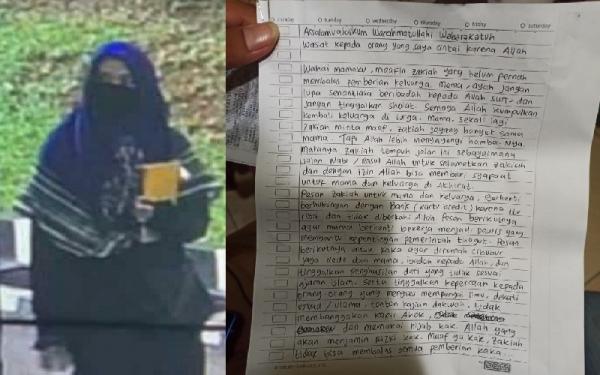 sunday
wednesday
thursday
friday
saturday
Assalamualaikum Warahmatullahi Wabarakatuh
Wasiat kepada orang yang saya cintai karena Allah
Wahai mamaku, maafin zakiah yang belum pernah
membalas pemberian keluarga. Mama, ayah jangan
lupa senantiasa beribadah kepada Allah dan
jangan tinggalkan sholat. Semoga Allah kumpulkan
kembali keluarga di surga. Mama sekali lagi
zakiah minta maaf. zakiah sayang banget sama
mama. Tapi Allah lebih menyayangi hamba-Nya.
Makanya zakiah tempuh jalan ini sebagaimana
jalan Nabi / Rasul Allah untuk selamatkan zakiah
dan dengan izin Allah bisa memberi syafaat
untuk mama dan keluarga di Akhirat.
Pesan zakiah untuk mama dan keluarga, berhenti
berhubungan dengan Bank (kartu credit) karena itu
riba dan tidak diberkahi Allah. Pesan berikutnya
agar mama berhenti bekerja menjadi yang
membantu kepentingan pemerintah thogut. Pesan
berikutnya untuk kaka agar dirumah Cibubur
jaga dede dan mama, ibadah kepada Allah, dan
tinggalkan penghasilan dari yang tidak sesuai
ajaran Islam. serta tinggalkan kepercayaan kepada
orang-orang yang mengaku mempunyai ilmu, dekati
ustad / ulama, tonton kajian dakwah, tidak
membanggakan kafir Ahok,
dan memakai hijab kak. Allah yang
akan menjamin rizki kak. Maaf ya kak, zakiah
tidak bisa membalas semua pemberian kaka.